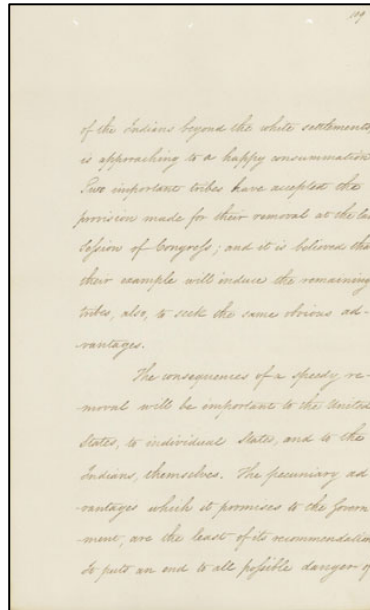 109
of the Indians beyond the white settlements,
is approaching to a happy consummation.
Two important tribes have accepted the
provision made for their removal at the las
Session of Congress; and it is believed tha
their example will induce the remaining
tribes, also, to seek the same obvious ad-
-vantages.
The consequences of a speedy re-
moval will be important to the United
States, to individual States, and to the
Indians, themselves. The pecuniary ad
vantages which it promises to the Govern
-ment, are the least of its recommendation
It puts an end to all possible danger of